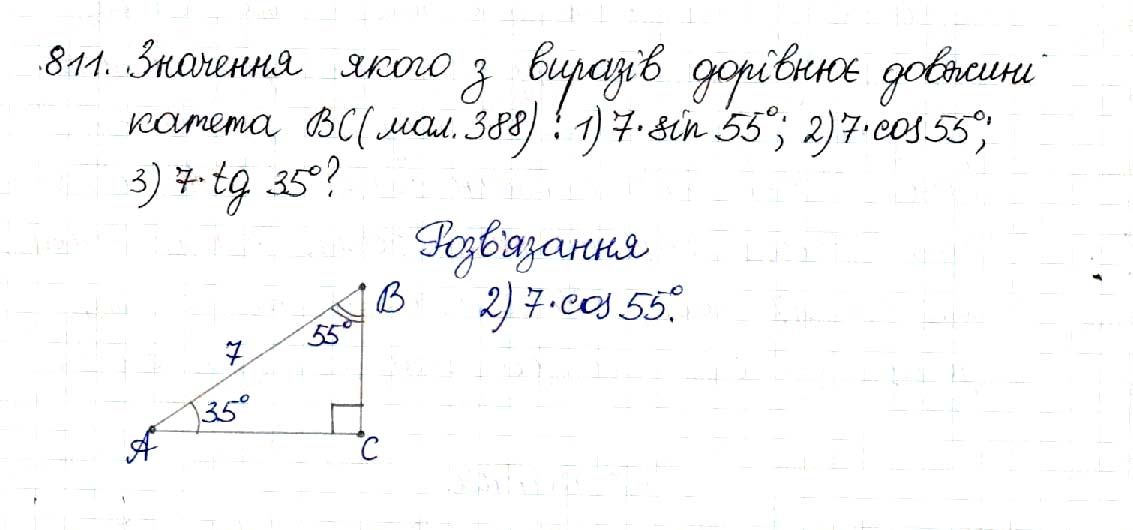 811. Значення якого з виразів дорівнює довжині
катета BC (мал. 388) : 1) 7·sin 55°; 2) 7·cos 55°;
3) 7·tg 35°?
Розв'язання
B
2) 7·cos 55°.
55°
7
35°
A
C